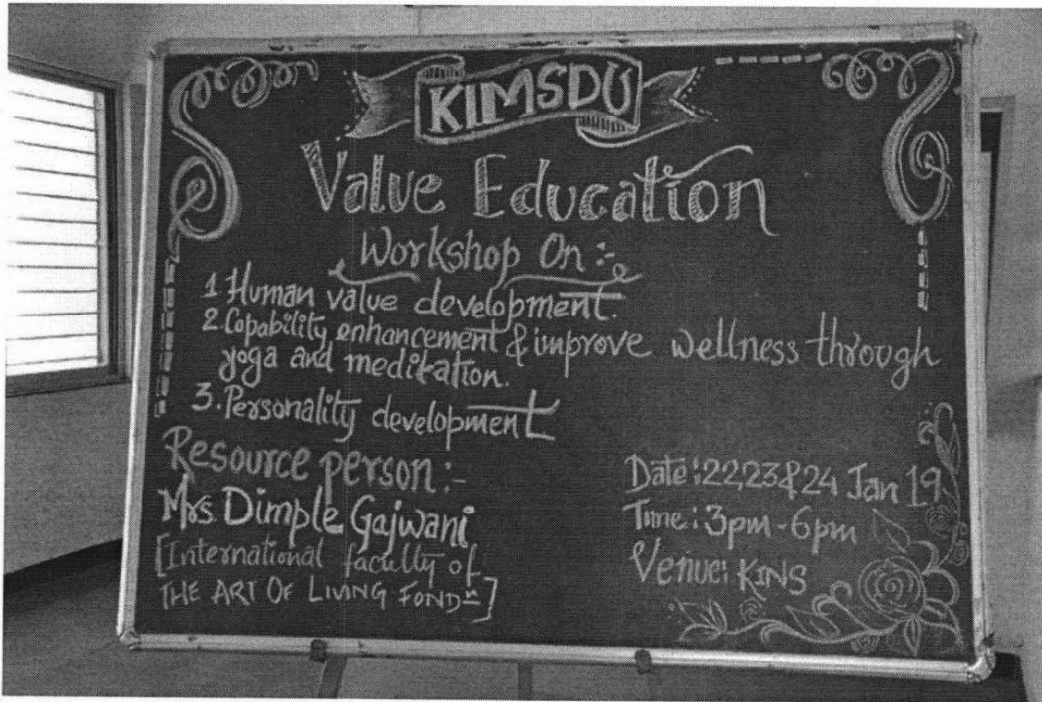 KIMSDU
Value Education
Workshop On :-
1 Human value development.
2. Capability enhancement & improve wellness through
yoga and meditation.
3. Personality development
Resource person :-
Mrs Dimple Gajwani
[International faculty of
THE ART OF LIVING FONDn]
Date : 22,23 & 24 Jan 19
Time : 3pm - 6pm
Venue: KINS